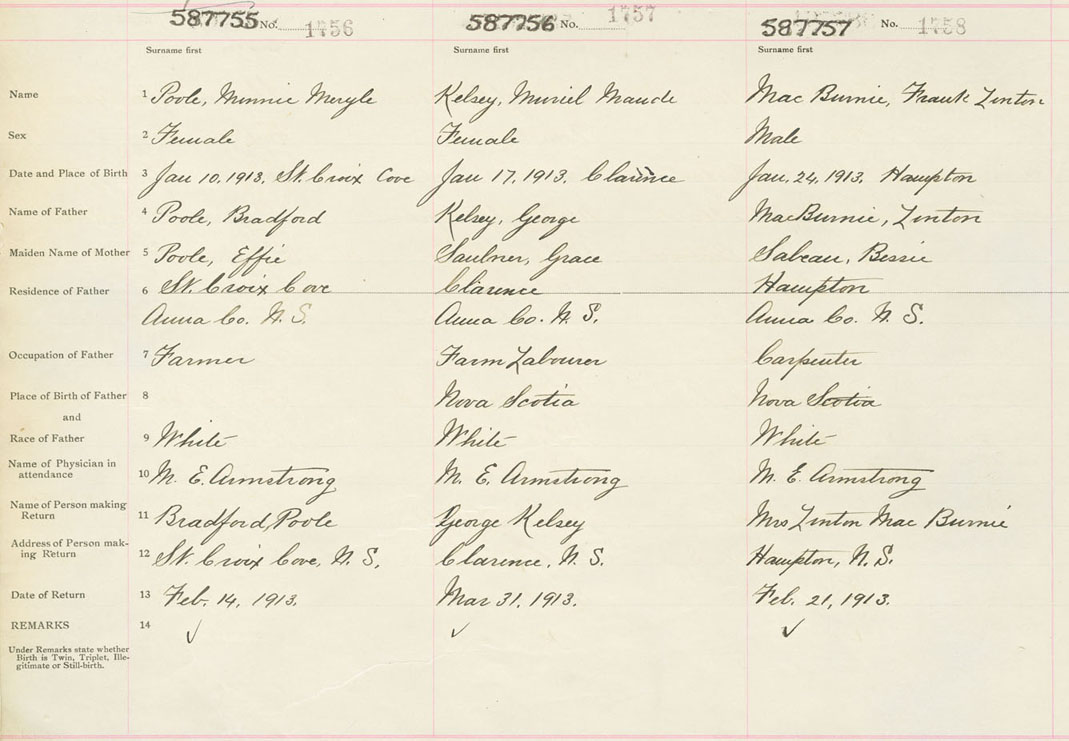 587755 No. 1756 587756 No. 1757 587757 No. 1758
Surname first Surname first Surname first
Name 1 Poole, Minnie Meryle Kelsey, Muriel Maude Mac Burnie, Frank Linton
Sex 2 Female Female Male
Date and Place of Birth 3 Jan 10, 1913, St. Croix Cove Jan 17, 1913. Clarence Jan. 24, 1913. Hampton
Name of Father 4 Poole, Bradford Kelsey, George MacBurnie, Linton
Maiden Name of Mother 5 Poole, Effie Saulner, Grace Sabeau, Bessie
Residence of Father 6 St. Croix Cove Clarence Hampton
Anna Co. N. S. Anna Co. N. S. Anna Co. N. S.
Occupation of Father 7 Farmer Farm Labourer Carpenter
Place of Birth of Father 8 Nova Scotia Nova Scotia
and
Race of Father 9 White White White
Name of Physician in
attendance 10 M. E. Armstrong M. E. Armstrong M. E. Armstrong
Name of Person making
Return 11 Bradford Poole George Kelsey Mrs Linton Mac Burnie
Address of Person mak-
ing Return 12 St. Croix Cove, N. S. Clarence, N. S. Hampton, N. S.
Date of Return 13 Feb. 14, 1913. Mar 31, 1913. Feb. 21, 1913.
REMARKS 14
Under Remarks state whether
Birth is Twin, Triplet, Ille-
gitimate or Still-birth.